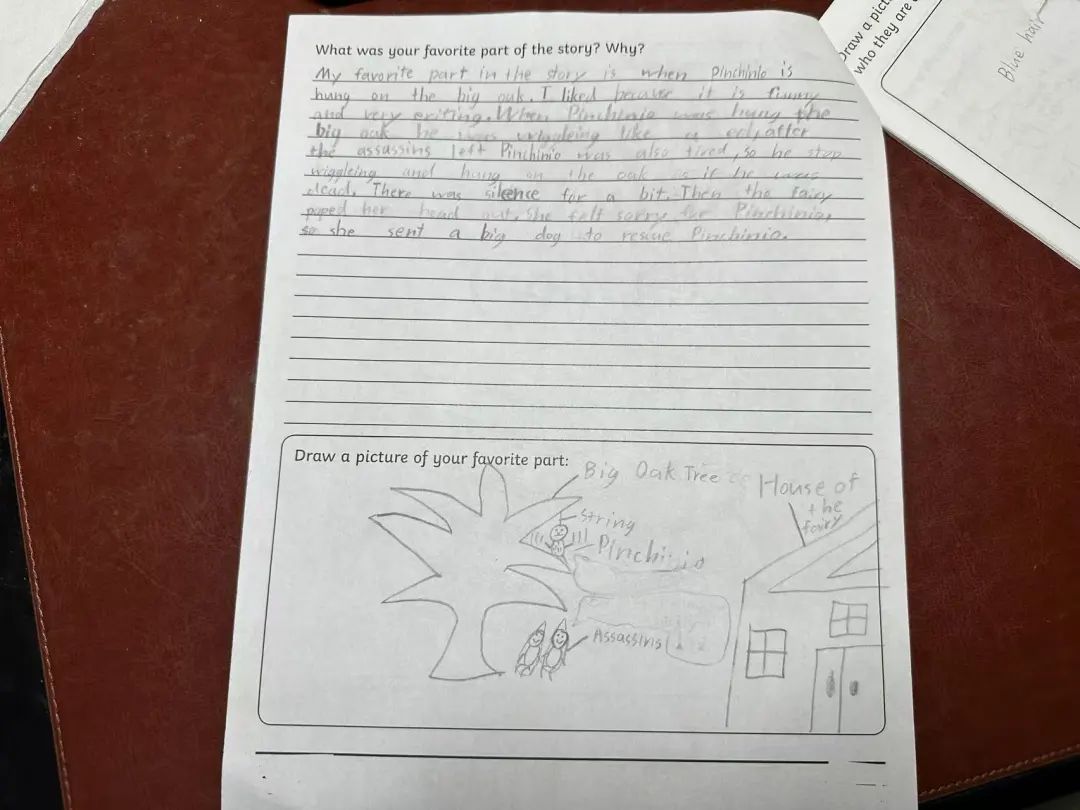 What was your favorite part of the story? Why?
My favorite part in the story is when Pinchinio is
hung on the big oak. I liked because it is funny
and very exiting. When Pinchinio was hung the
big oak he was wiggleing like a eel, after
the assassins left Pinchinio was also tired, so he stop
wiggleing and hung on the oak as if he was
dead. There was silence for a bit. Then the fairy
poped her head out. She felt sorry for Pinchinio,
so she sent a big dog to rescue Pinchinio.
Draw a picture of your favorite part:
Big Oak Tree
House of
the
fairy
String
Pinchinio
Assassins
Draw a pict
who they are
Blue hair